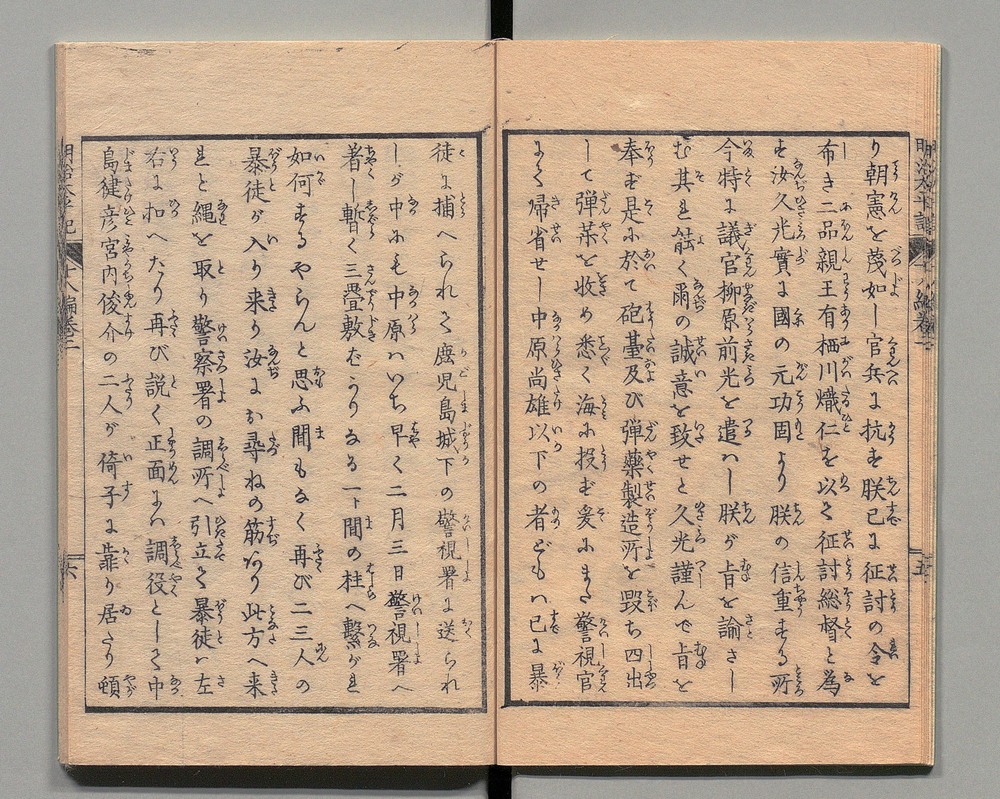 り朝憲を蔑如し官兵に抗す朕已に征討の令を
布き二品親王有栖川熾仁を以て征討総督と為
す汝久光實に國の元功固より朕の信重する所
今特に議官柳原前光を遣はし朕が旨を諭さし
む其れ能く爾の誠意を致せと久光謹んで旨を
奉ず是に於て砲䑓及び弾藥製造所を毀ち四出
して弾薬を收め悉く海に投ず爰にまた警視官
にて帰省せし中原尚雄以下の者どもハ已に暴
徒に捕へられて鹿児島城下の警視署に送られ
しが中にも中原ハいち早く二月三日警視署へ
着し暫く三疊敷ばかりなる一ト間の柱へ繋がれ
如何するやらんと思ふ間もなく再び二三人の
暴徒が入り来り汝にお尋ねの筋あり此方へ来
れと縄を取り警察署の調所へ引立て暴徒ハ左
右に扣へたり再び説く正面にハ調役として中
島健彦宮内俊介の二人が倚子に靠り居たり頓
明治太平記
十八編巻二
五
六